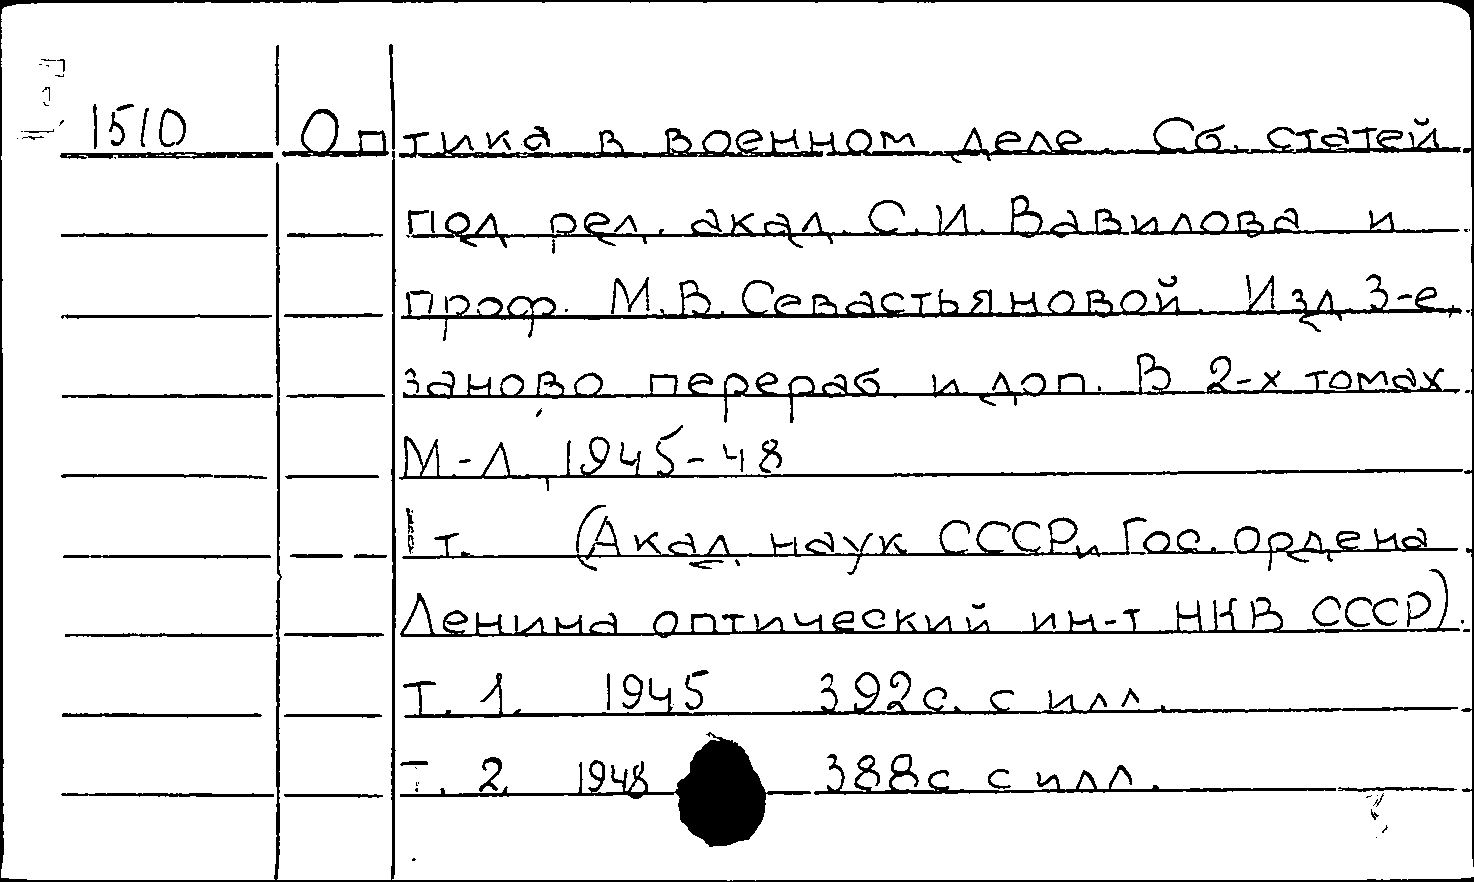 1510 Оптика в военном деле. Сб. статей
под ред. акад. С.И. Вавилова и
проф. М.В. Севастьяновой. Изд. 3-е,
заново перераб. и доп. В 2-х томах
М-Л, 1945-48
1 т. (Акад. наук СССР и Гос. ордена
Ленина оптический ин-т НКВ СССР).
Т. 1. 1945 392с. с илл.
Т. 2. 1948 388с с илл.